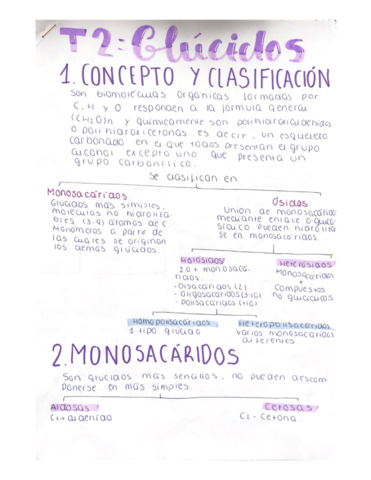 T2: Glúcidos
1. CONCEPTO Y CLASIFICACIÓN
Son biomoléculas orgánicas formadas por
C, H y O responden a la fórmula general
(CH2O)n y químicamente son polihidroxialdehidos
o polihidroxicetonas es decir, un esqueleto
carbonado en el que todos presentan el grupo
alcohol excepto uno que presenta un
grupo carbonílico.
Se clasifican en
Monosacáridos
Glúcidos más simples,
moléculas no hidroliza-
bles (3-9) átomos de C
Monómeros a partir de
las cuales se originan
los demás glúcidos.
Ósidos
Unión de monosacáridos
mediante enlace O-gluco-
sídico. Pueden hidroliza
se en monosacáridos.
Holósidos
2 o + monosacá-
ridos.
- Disacáridos (2)
- Oligosacáridos (3-10)
- Polisacáridos (+10)
Heterósidos
Monosacáridos
+
compuestos
no glúcidos
Homopolisacáridos
1 tipo glúcido
Heteropolisacáridos
varios monosacáridos
diferentes
2. MONOSACÁRIDOS
Son glúcidos más sencillos, no pueden descom-
ponerse en más simples.
Aldosas
C1 → aldehído
Cetosas
C2 - Cetona.